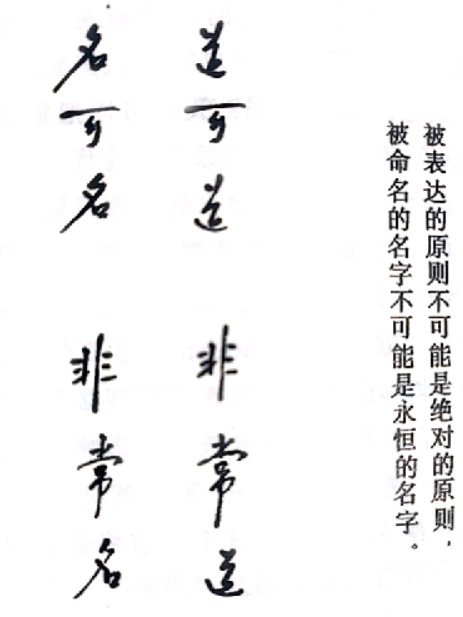 被表达的原则不可能是绝对的原则，
被命名的名字不可能是永恒的名字。
道可道
非常道
名可名
非常名